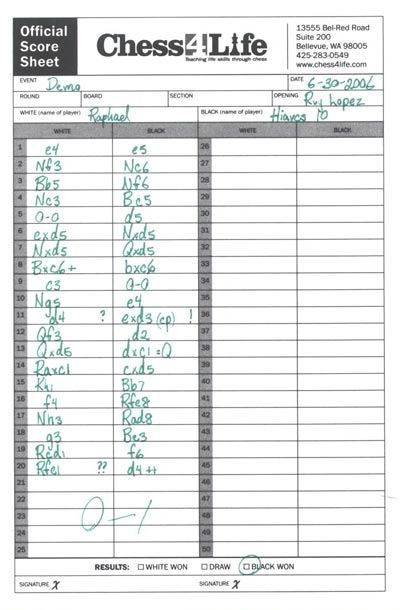 Official Score Sheet
Chess4Life
Teaching life skills through chess
13555 Bel-Red Road
Suite 200
Bellevue, WA 98005
425-283-0549
www.chess4life.com
EVENT Demo DATE 6-30-2006
ROUND BOARD SECTION OPENING Ruy Lopez
WHITE (name of player) Raphael BLACK (name of player) Hiarcs 10
WHITE BLACK WHITE BLACK
1 e4 e5 26
2 Nf3 Nc6 27
3 Bb5 Nf6 28
4 Nc3 Bc5 29
5 O-O d5 30
6 exd5 Nxd5 31
7 Nxd5 Qxd5 32
8 Bxc6+ bxc6 33
9 c3 O-O 34
10 Ng5 e4 35
11 d4 ? exd3 (ep) ! 36
12 Qf3 d2 37
13 Qxd5 dxc1=Q 38
14 Raxc1 cxd5 39
15 Kh1 Bb7 40
16 f4 Rfe8 41
17 Nh3 Rad8 42
18 g3 Be3 43
19 Rcd1 f6 44
20 Rfe1 ?? d4++ 45
21 46
22 47
23 0-1 48
24 49
25 50
RESULTS: WHITE WON DRAW BLACK WON
SIGNATURE X SIGNATURE X